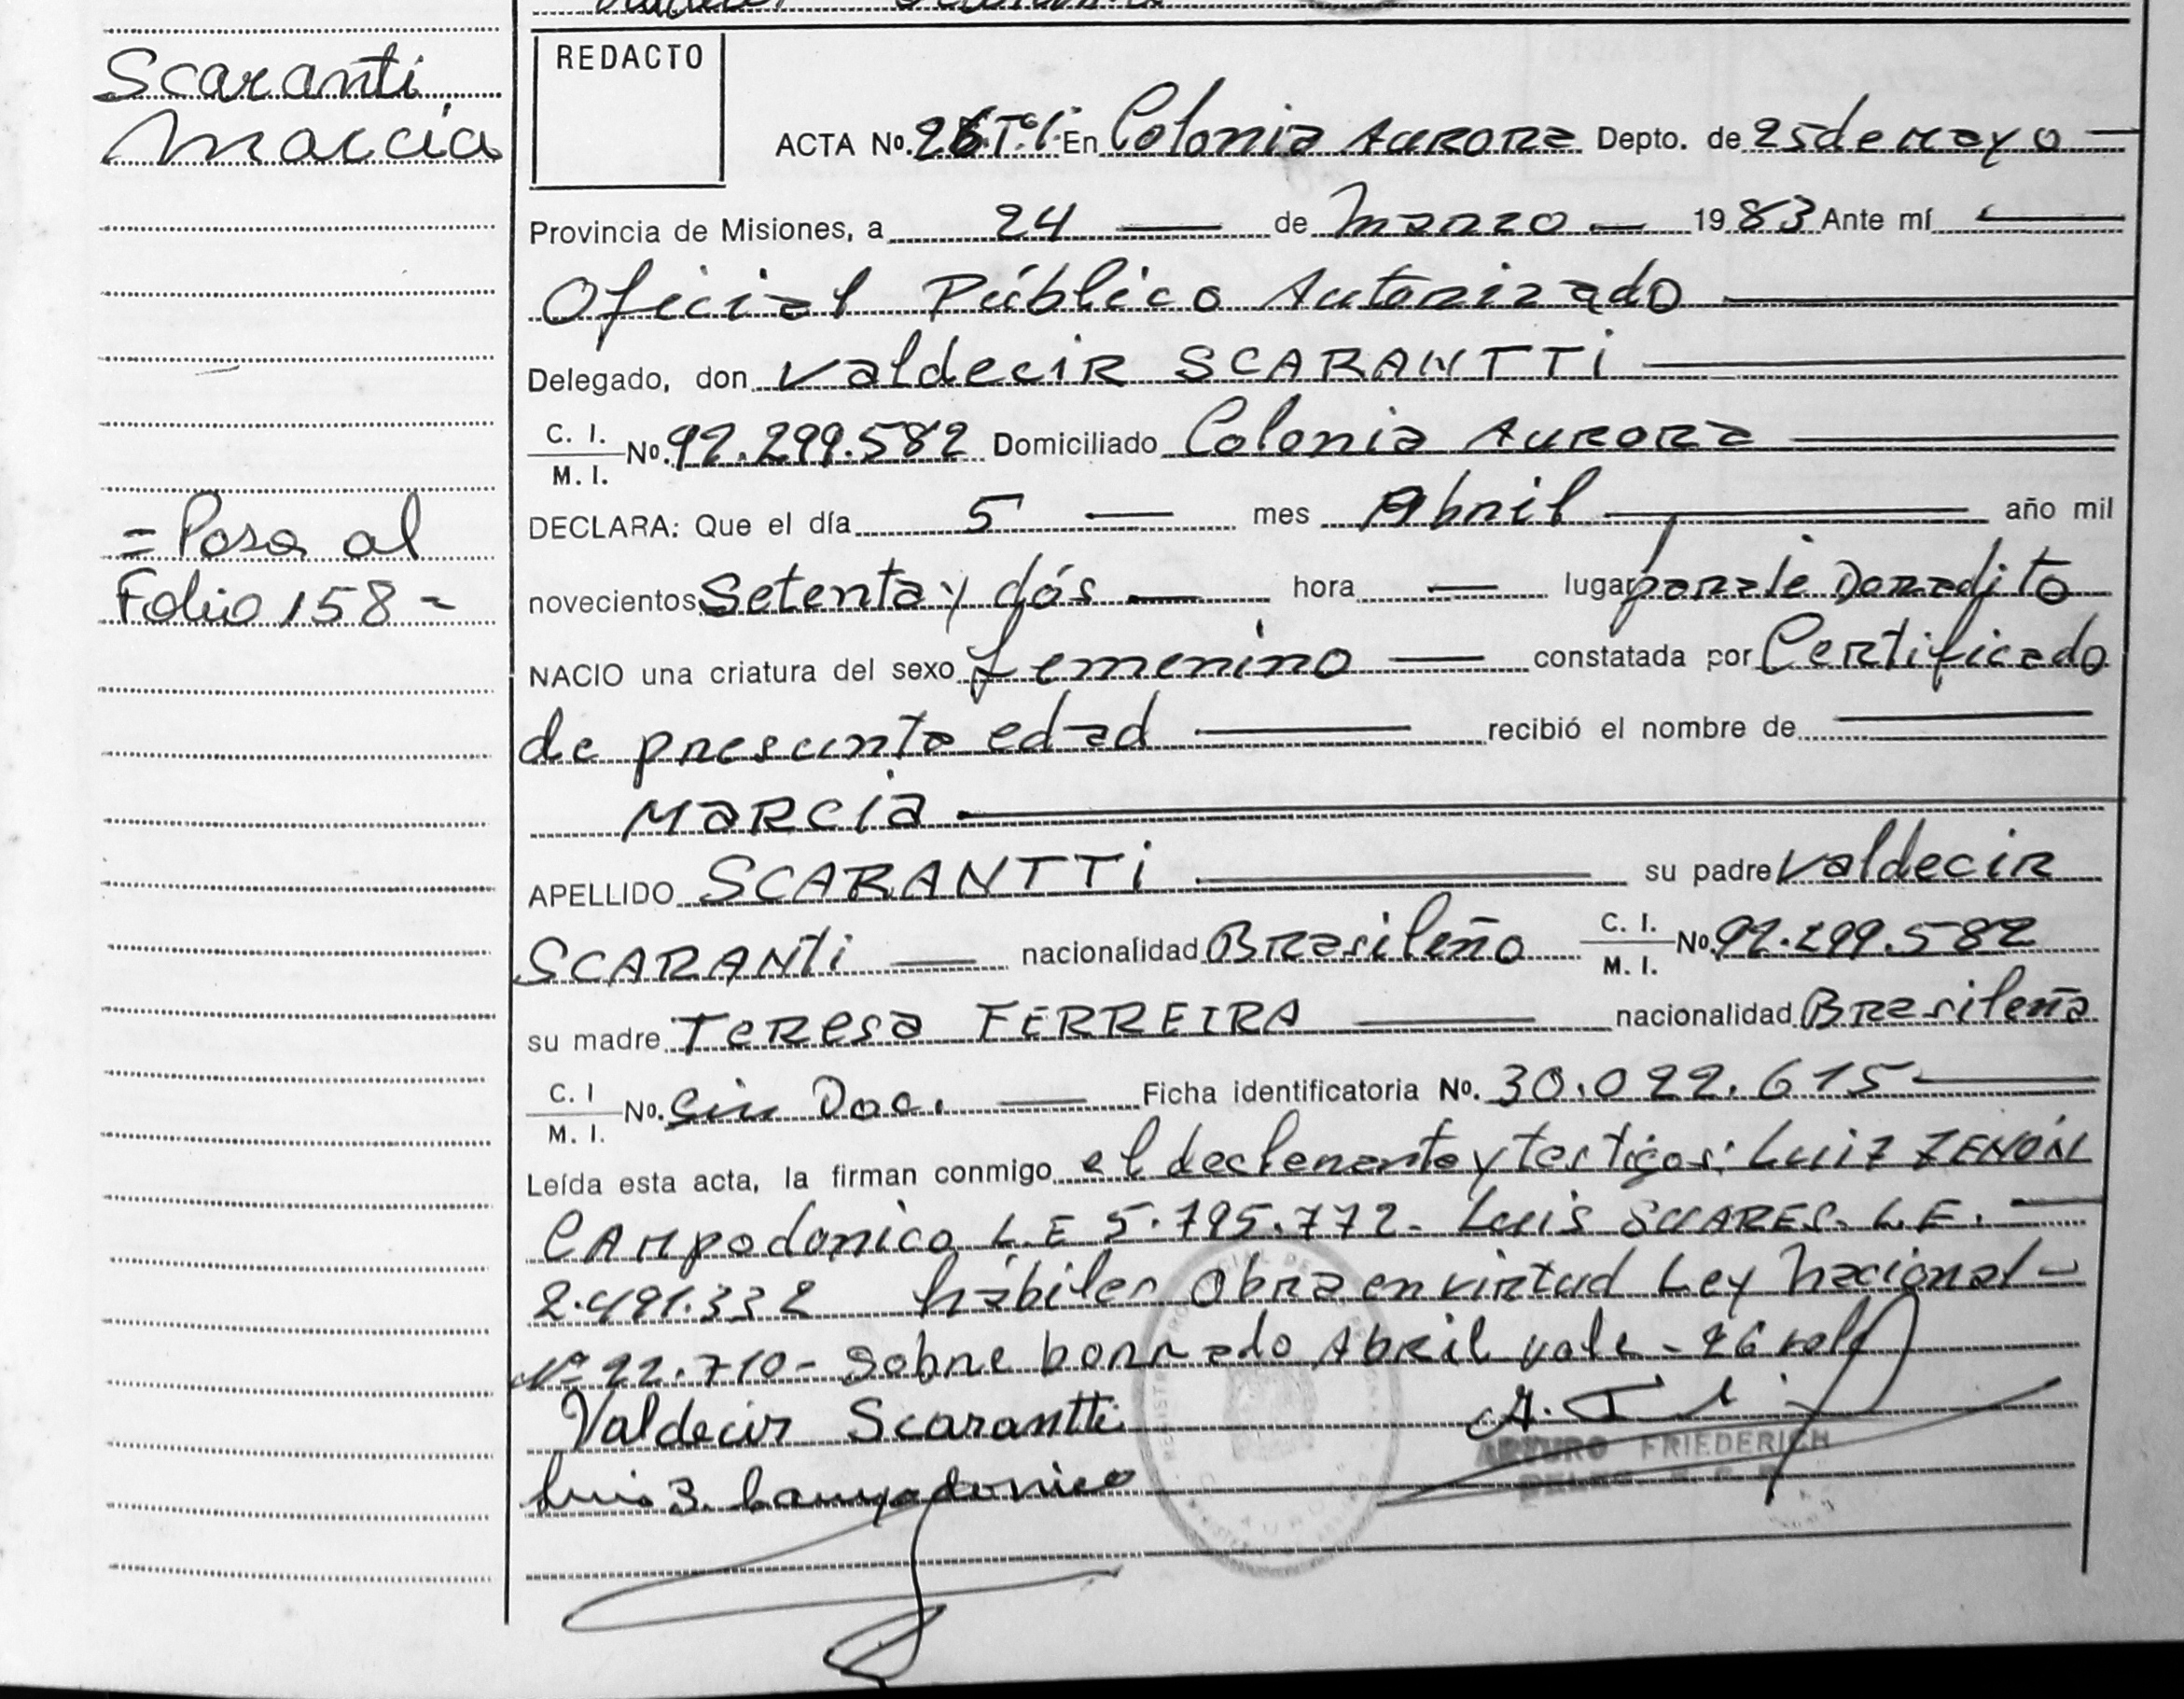 Scaranti
Marcia
= Pasa al
Folio 158 =
REDACTO
ACTA No. 26 Tº I En Colonia Aurora Depto. de 25 de mayo —
Provincia de Misiones, a 24 — de Marzo — 1983 Ante mí —
Oficial Público Autorizado —
Delegado, don Valdecir SCARANTTI —
C. I. / M. I. No. 92.299.582 Domiciliado Colonia Aurora —
DECLARA: Que el día 5 — mes Abril — año mil
novecientos Setenta y dós — hora — lugar paraje Doradito
NACIO una criatura del sexo femenino — constatada por Certificado
de presunta edad — recibió el nombre de —
Marcia —
APELLIDO SCARANTTI — su padre Valdecir
SCARANTI — nacionalidad Brasileño C. I. / M. I. No. 92.299.582
su madre Teresa FERREIRA — nacionalidad Brasileña
C. I / M. I. No. Sin Doc. — Ficha identificatoria No. 30.022.615 —
Leída esta acta, la firman conmigo el declarante y testigos: Luiz ZENÓN
CAMPodonico L.E 5.795.772- Luis SUARES. L.E. —
2.491.332 hábiles Obra en virtud Ley Nacional -
Nº 22.710- Sobre borrado Abril vale - 26 vale
Valdecir Scarantti
Luis Z. Campodonico
ARTURO FRIEDERICH